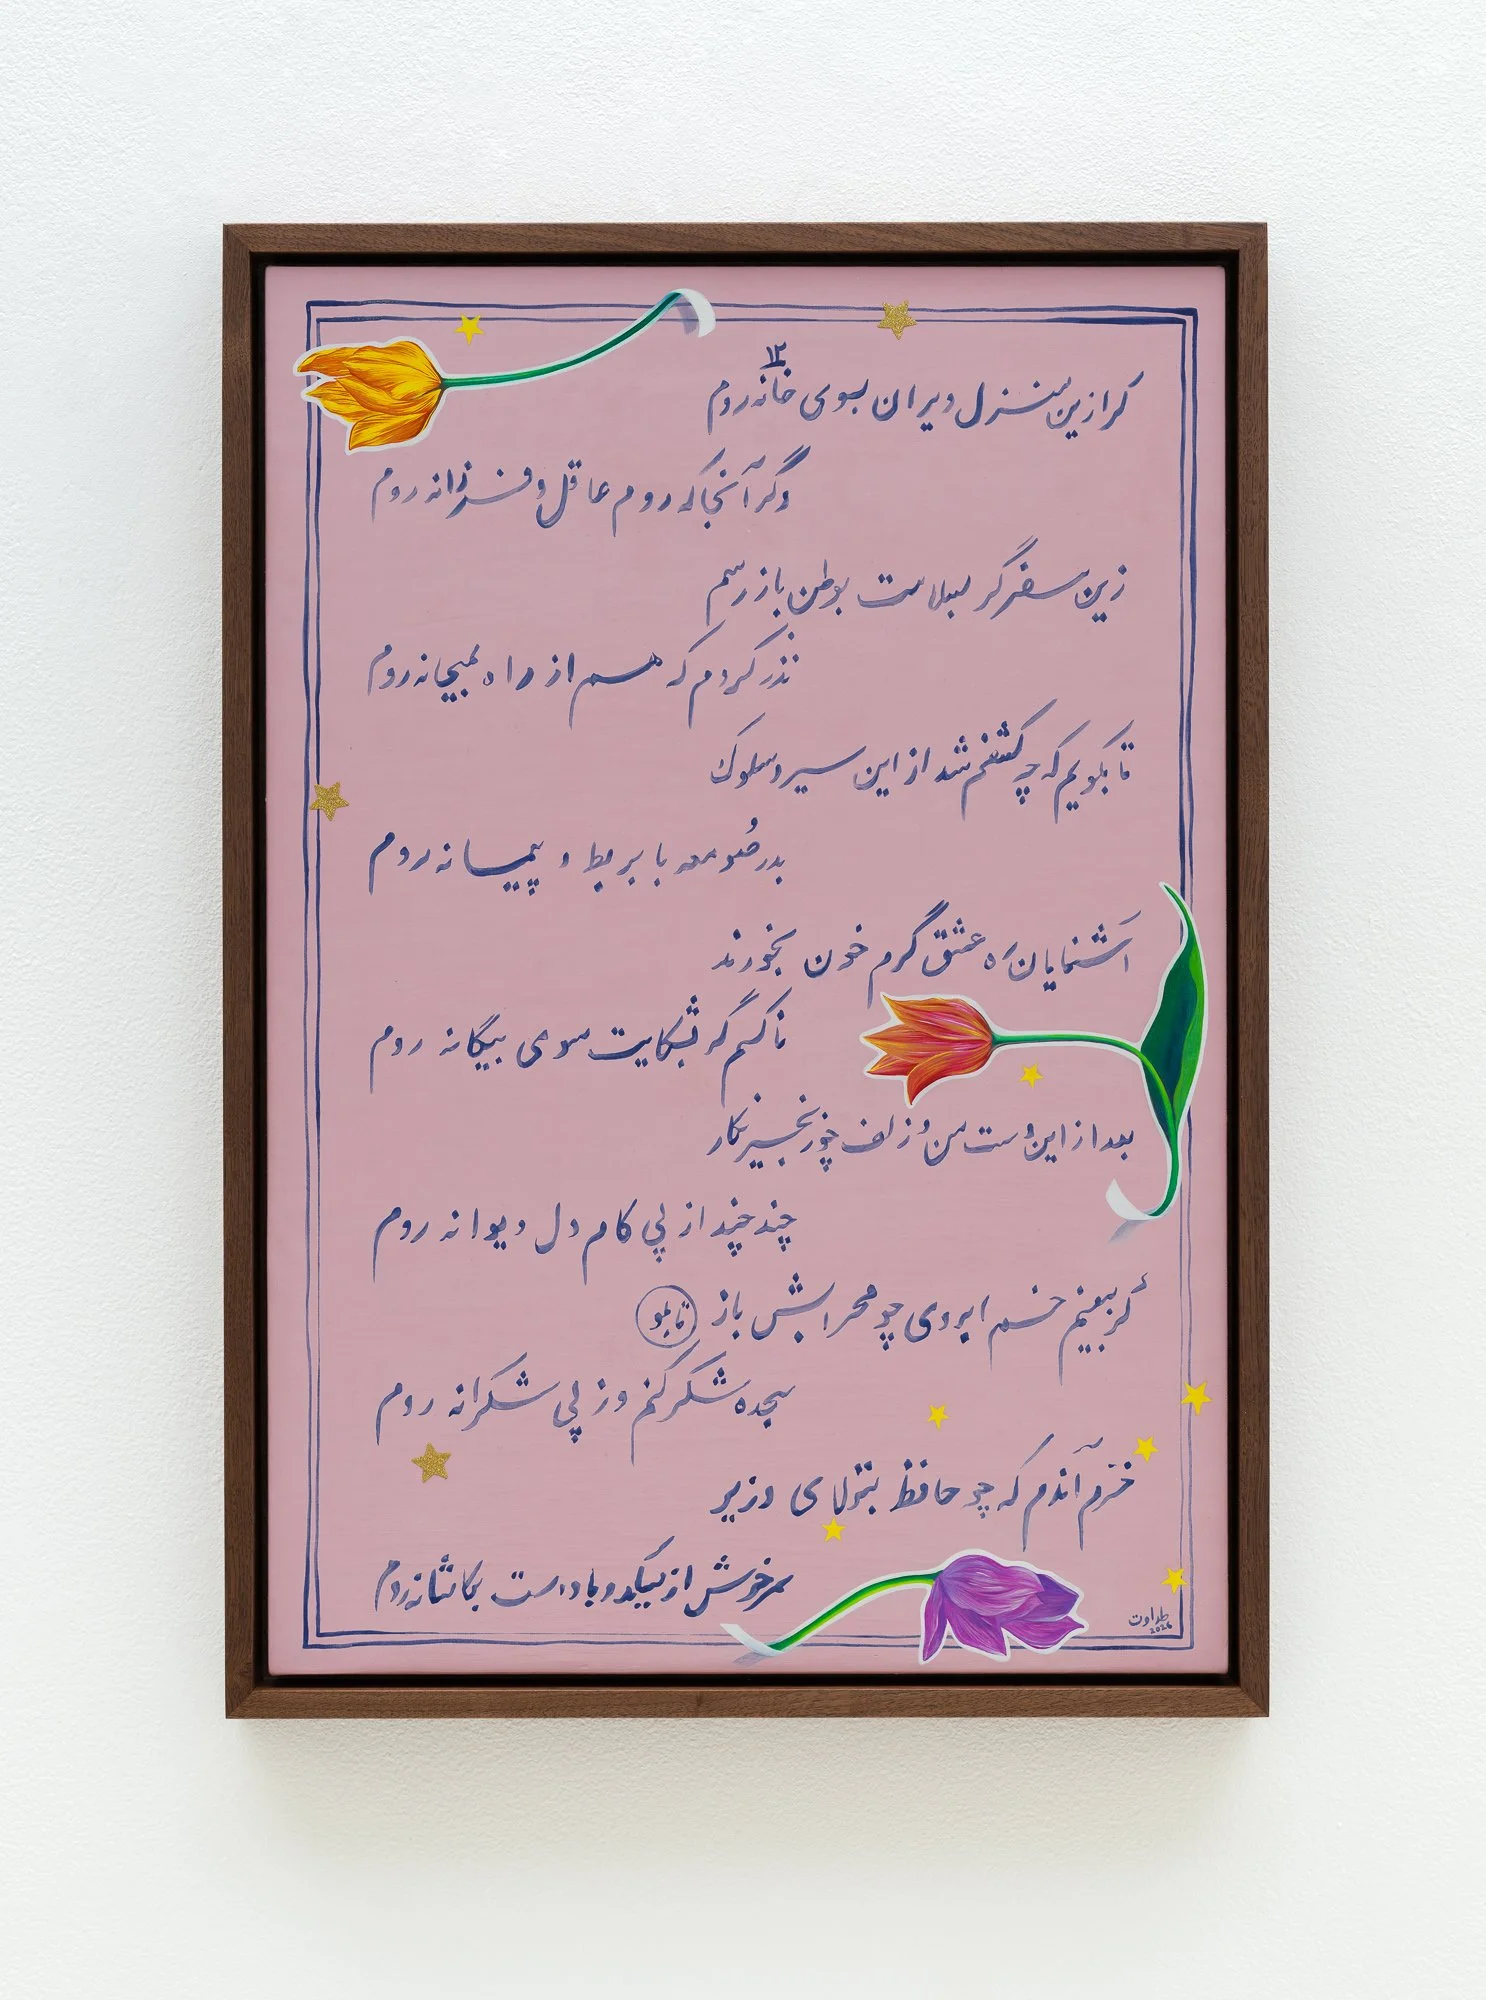 ۱۲
گر ازین منزل ویران بسوی خانه روم
وگر آنجا که روم عاقل و فرزانه روم
زین سفر گر بسلامت بوطن باز رسم
نذر کردم که هم از راه بمیخانه روم
تا بگویم که چه کشفم شد از این سیر و سلوک
بدر صومعه با بربط و پیمانه روم
آشنایان ره عشق گرم خون بخورند
ناکسم گر بشکایت سوی بیگانه روم
بعد از این دست من و زلف چو زنجیر نگار
چند چند از پی کام دل دیوانه روم
گر ببینم خم ابروی چو محرابش باز
سجده شکر کنم وز پی شکرانه روم
خرم آندم که چو حافظ بتولای وزیر
سرخوش از میکده با دوست بکاشانه روم
طراوت
2026